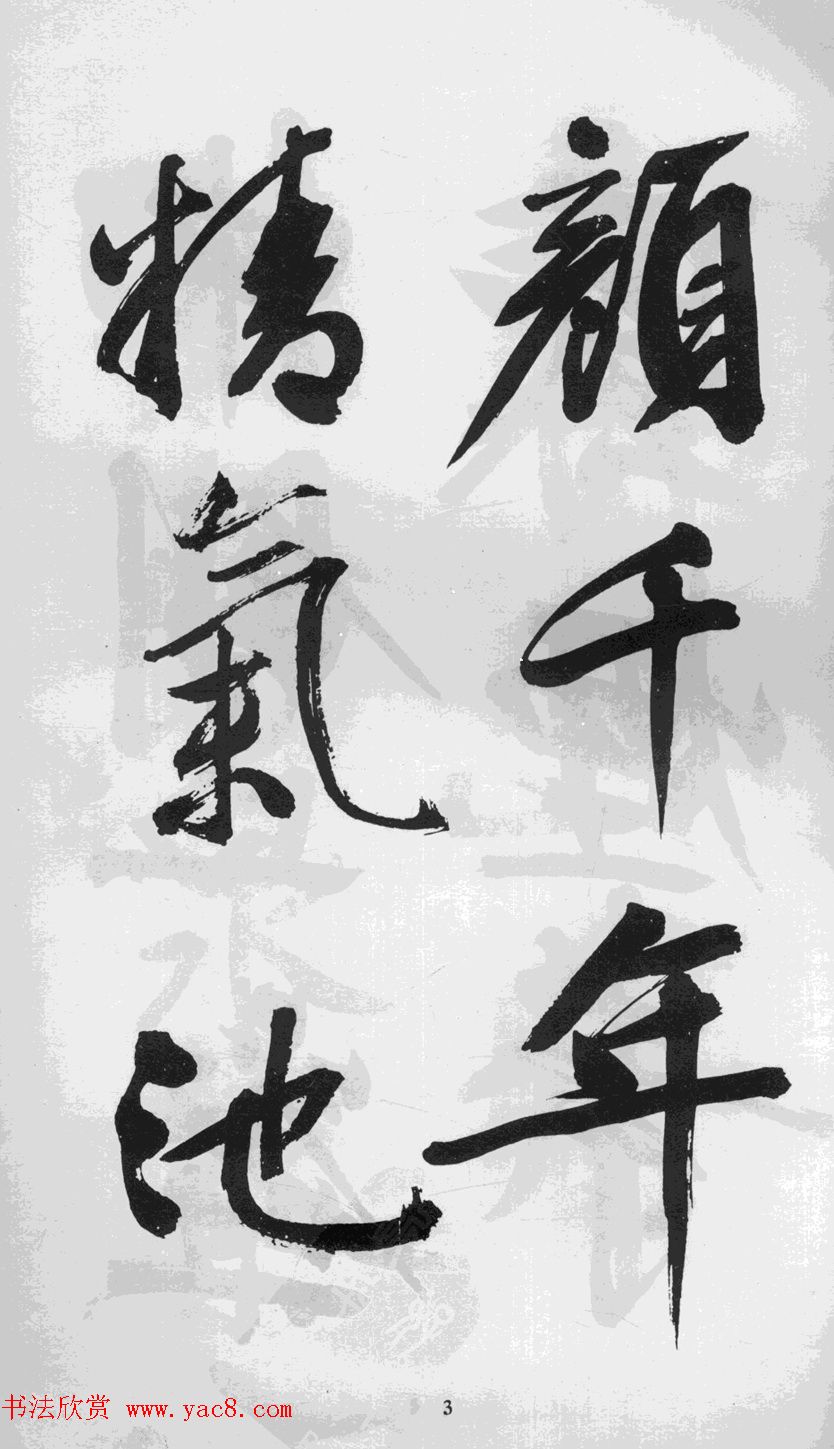 顏千年
精氣池
书法欣赏 www.yac8.com
3